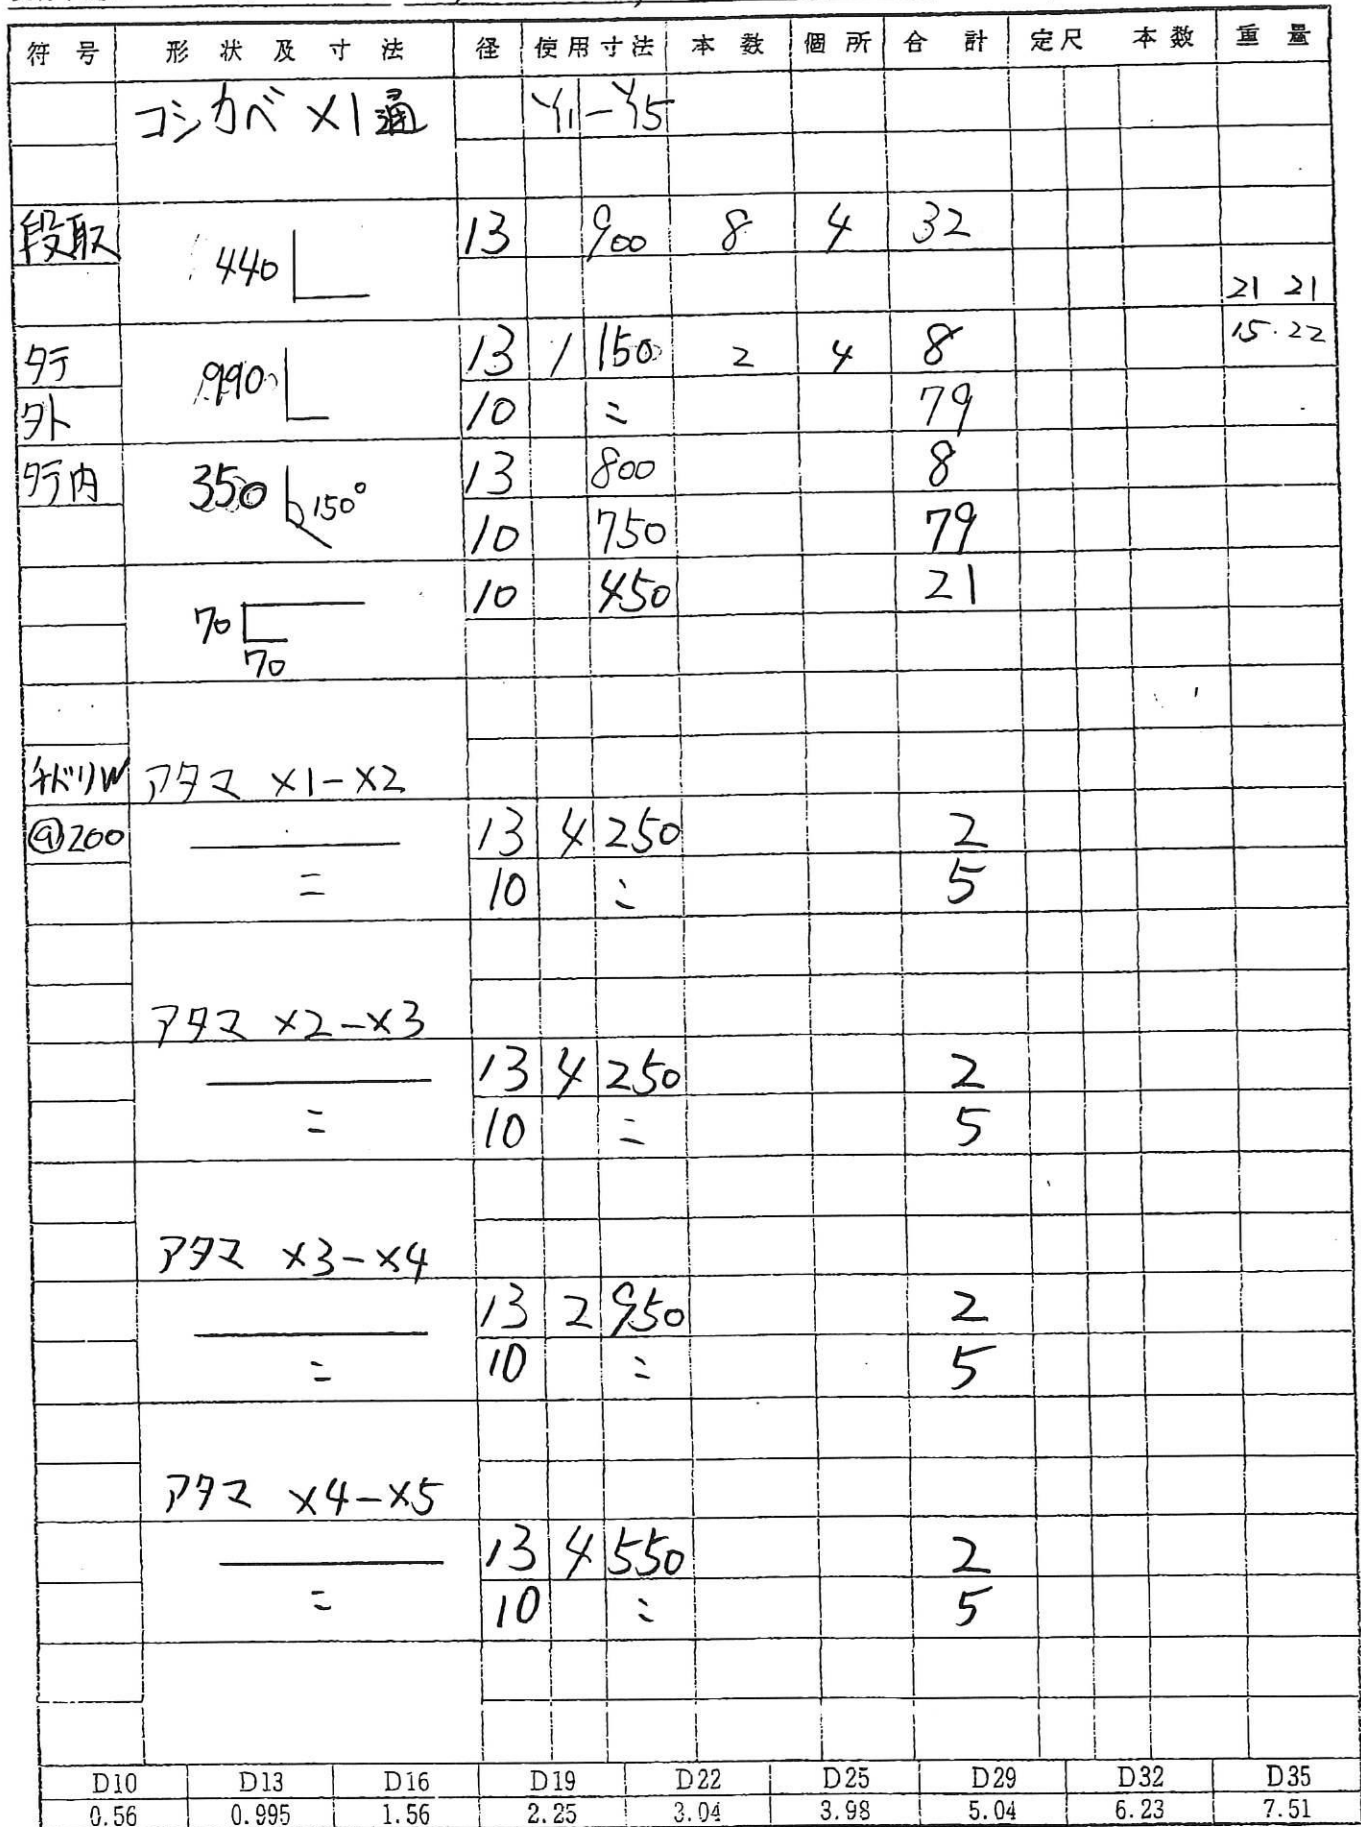 符号 形状及寸法 径 使用寸法 本数 個所 合計 定尺 本数 重量
コシカベ X1通 Y1-Y5
段取 440 13 900 8 4 32
21 21
タテ 990 13 1 150 2 4 8 15・22
外 10 〃 79
タテ内 350 150° 13 800 8
10 750 79
70 10 450 21
70
チドリW アタマ X1-X2
@200 13 4 250 2
〃 10 〃 5
アタマ X2-X3
13 4 250 2
〃 10 〃 5
アタマ X3-X4
13 2 950 2
〃 10 〃 5
アタマ X4-X5
13 4 550 2
〃 10 〃 5
D10 D13 D16 D19 D22 D25 D29 D32 D35
0.56 0.995 1.56 2.25 3.04 3.98 5.04 6.23 7.51